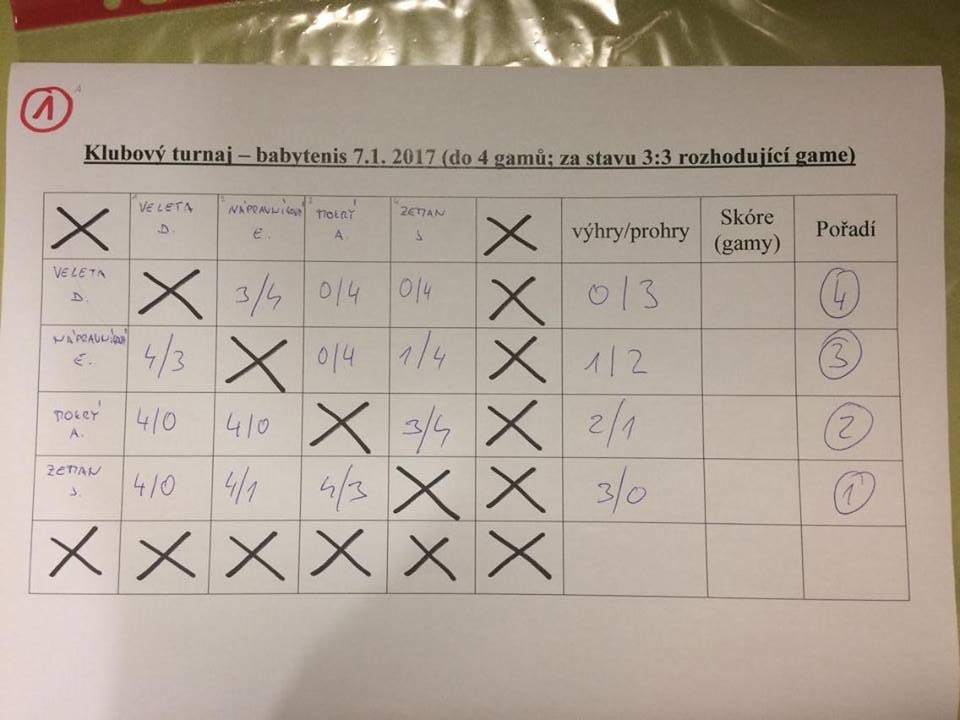 1
Klubový turnaj – babytenis 7.1. 2017 (do 4 gamů; za stavu 3:3 rozhodující game)
VELETA D. NÁPRAVNÍKOVÁ E. MOKRÝ A. ZEMAN J. výhry/prohry Skóre (gamy) Pořadí
VELETA D. 3/4 0/4 0/4 0/3 4
NÁPRAVNÍKOVÁ E. 4/3 0/4 1/4 1/2 3
MOKRÝ A. 4/0 4/0 3/4 2/1 2
ZEMAN J. 4/0 4/1 4/3 3/0 1